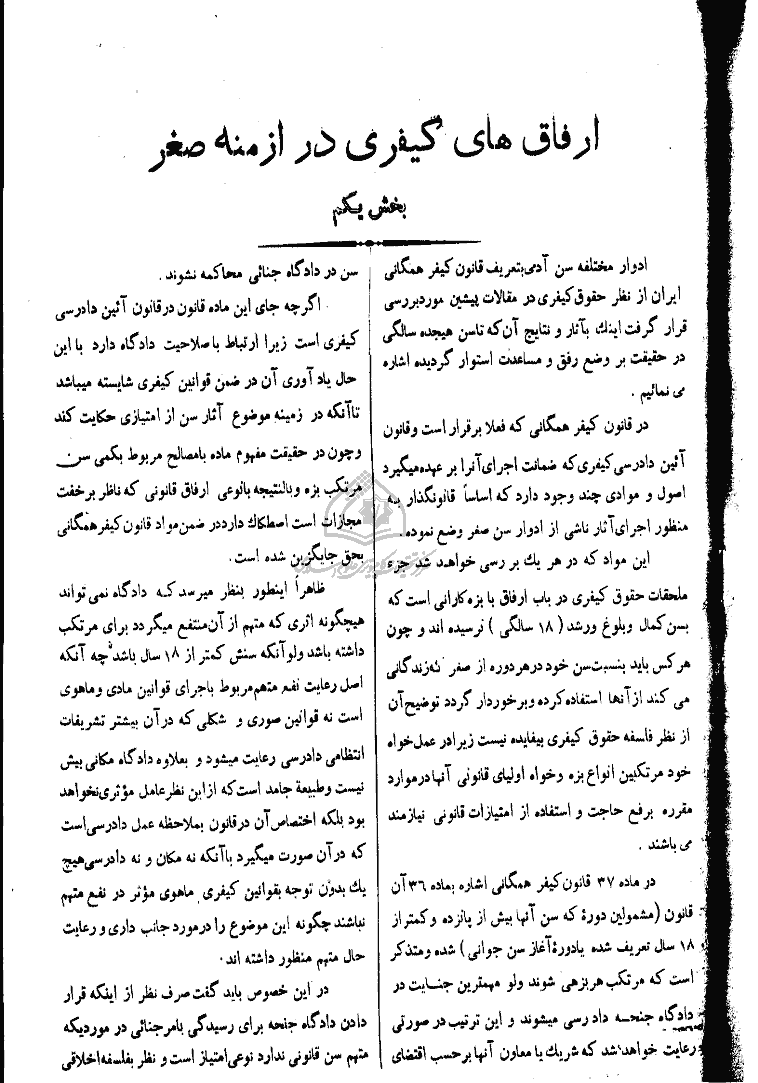 ارفاق های کیفری در ازمنه صغر
بخش یکم
ادوار مختلفه سن آدمی بتعریف قانون کیفر همگانی
ایران از نظر حقوق کیفری در مقالات پیشین مورد بررسی
قرار گرفت اینك بآثار و نتایج آن که تاسن هیجده سالگی
در حقیقت بر وضع رفق و مساعدت استوار گردیده اشاره
می نمائیم .
در قانون کیفر همگانی که فعلا برقرار است و قانون
آئین دادرسی کیفری که ضمانت اجرای آنرا بر عهده میگیرد
اصول و موادی چند وجود دارد که اساساً قانونگذار به
منظور اجرای آثار ناشی از ادوار سن صغر وضع نموده .
این مواد که در هر یك بررسی خواهد شد جزء
ملحقات حقوق کیفری در باب ارفاق با بزه کارانی است که
بسن کمال و بلوغ و رشد ( ۱۸ سالگی ) نرسیده اند و چون
هر کس باید بنسبت سن خود در هر دوره از صغر که زندگانی
می کند از آنها استفاده کرده و برخوردار گردد توضیح آن
از نظر فلسفه حقوق کیفری بیفایده نیست زیرا در عمل خواه
خود مرتکبین انواع بزه و خواه اولیای قانونی آنها در موارد
مقرره برفع حاجت و استفاده از امتیازات قانونی نیازمند
می باشند .
در ماده ۳۷ قانون کیفر همگانی اشاره بماده ۳۶ آن
قانون (مشمولین دورهٔ که سن آنها بیش از پانزده و کمتر از
۱۸ سال تعریف شده یا دورهٔ آغاز سن جوانی ) شده و متذکر
است که مرتکب هر بزهی شوند ولو مهمترین جنایت در
دادگاه جنحه دادرسی میشوند و این ترتیب در صورتی
رعایت خواهد شد که شریك یا معاون آنها بر حسب اقتضای
سن در دادگاه جنائی محاکمه نشوند .
اگرچه جای این ماده قانون در قانون آئین دادرسی
کیفری است زیرا ارتباط با صلاحیت دادگاه دارد با این
حال یاد آوری آن در ضمن قوانین کیفری شایسته میباشد
تا آنکه در زمینه موضوع آثار سن از امتیازی حکایت کند
و چون در حقیقت مفهوم ماده بامصالح مربوط بکمی سن
مرتکب بزه و بالنتیجه بانوعی ارفاق قانونی که ناظر بر خفت
مجازات است اصطکاك دارد در ضمن مواد قانون کیفر همگانی
بحق جایگزین شده است .
ظاهراً اینطور بنظر میرسد که دادگاه نمی تواند
هیچگونه اثری که متهم از آن منتفع میگردد برای مرتکب
داشته باشد ولو آنکه سنش کمتر از ۱۸ سال باشد چه آنکه
اصل رعایت نفع متهم مربوط باجرای قوانین مادی و ماهوی
است نه قوانین صوری و شکلی که در آن بیشتر تشریفات
انتظامی دادرسی رعایت میشود و بعلاوه دادگاه مکانی بیش
نیست و طبیعة جامد است که از این نظر عامل مؤثری نخواهد
بود بلکه اختصاص آن در قانون بملاحظه عمل دادرسی است
که در آن صورت میگیرد با آنکه نه مکان و نه دادرسی هیچ
یك بدون توجه بقوانین کیفری ماهوی مؤثر در نفع متهم
نباشند چگونه این موضوع را در مورد جانب داری و رعایت
حال متهم منظور داشته اند .
در این خصوص باید گفت صرف نظر از اینکه قرار
دادن دادگاه جنحه برای رسیدگی بامر جنائی در موردیکه
متهم سن قانونی ندارد نوعی امتیاز است و نظر بفلسفه اخلاقی